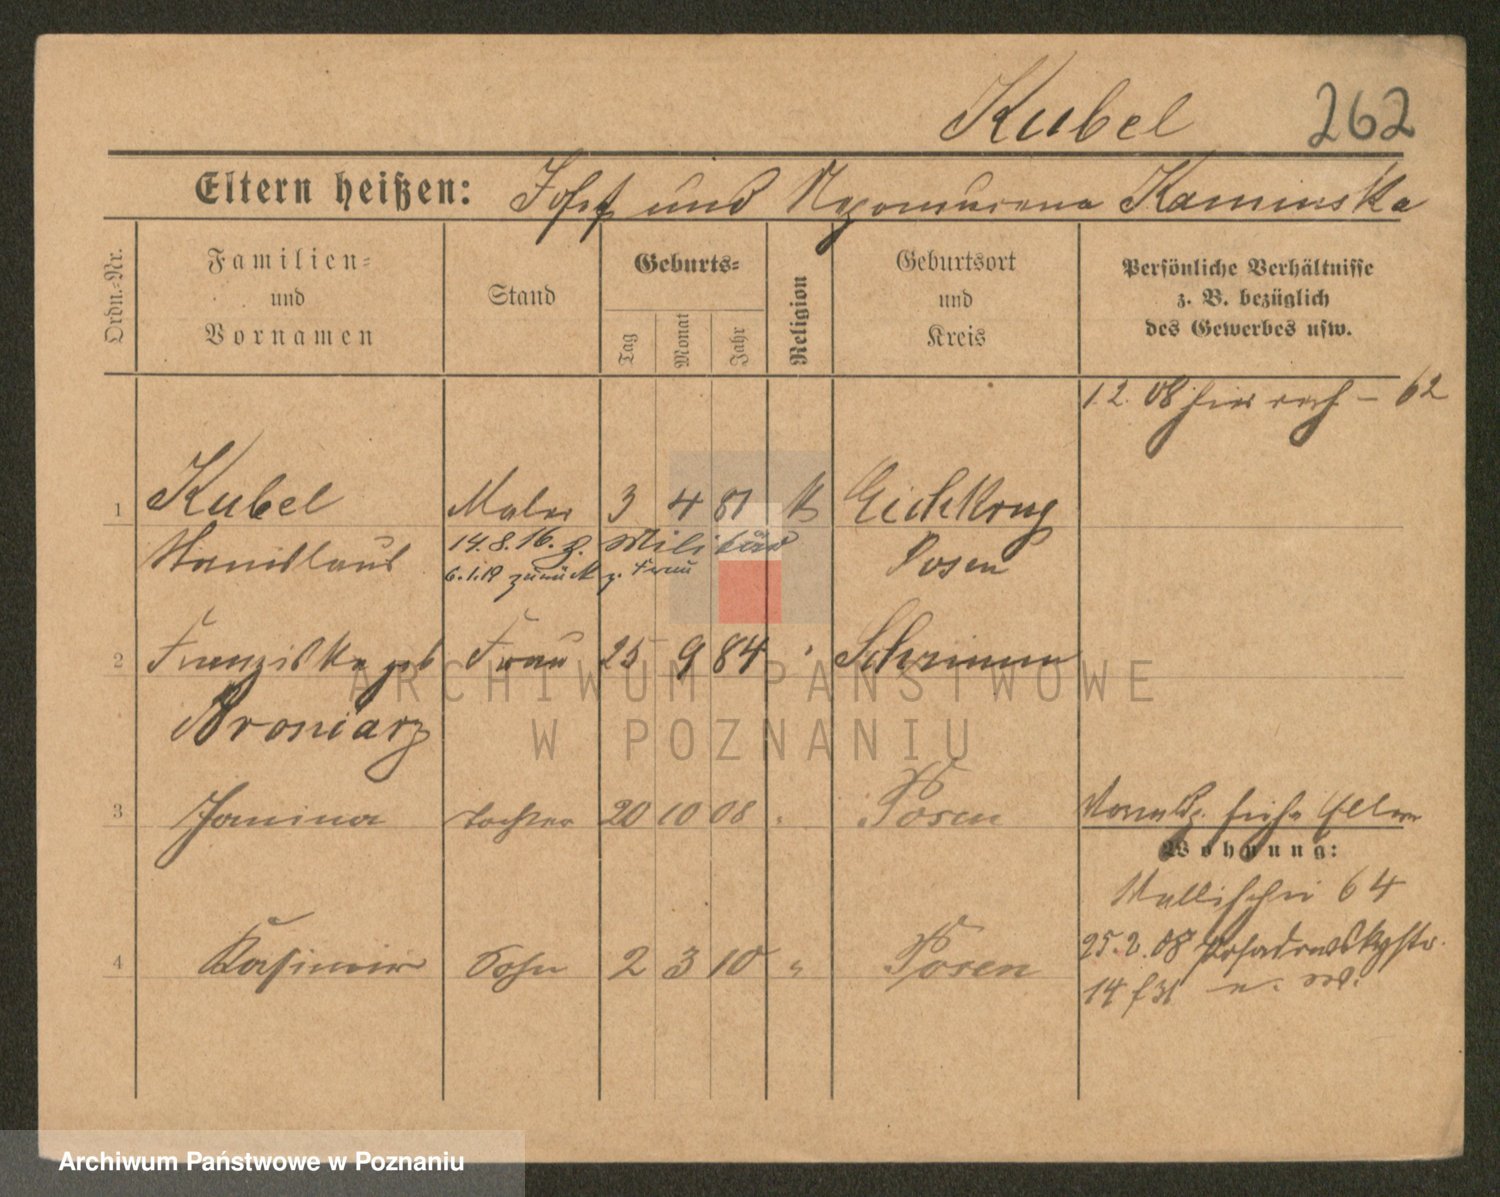 Kubel 262
Eltern heißen: Josef und Nepomucena Kaminska
Ordn.-Nr.
Familien-
und
Vornamen
Stand
Geburts-
Tag
Monat
Jahr
Religion
Geburtsort
und
Kreis
Persönliche Verhältnisse
z. B. bezüglich
des Gewerbes usw.
1.2.08 hier - 62
1 Kubel Maler 3 4 81 K Eichkrug
Stanislaus 14.8.16. z. Militär Posen
6.1.19 zurück z. Frau
2 Franziska geb Frau 25 9 84 " Schrimm
Broniarz
3 Janina Tochter 20 10 08 " Posen
Wohnung:
Wallischei 64
4 Kasimir Sohn 2 3 10 " Posen
25.2.08 Posadowskystr.
14
ARCHIWUM PAŃSTWOWE
W POZNANIU
Archiwum Państwowe w Poznaniu